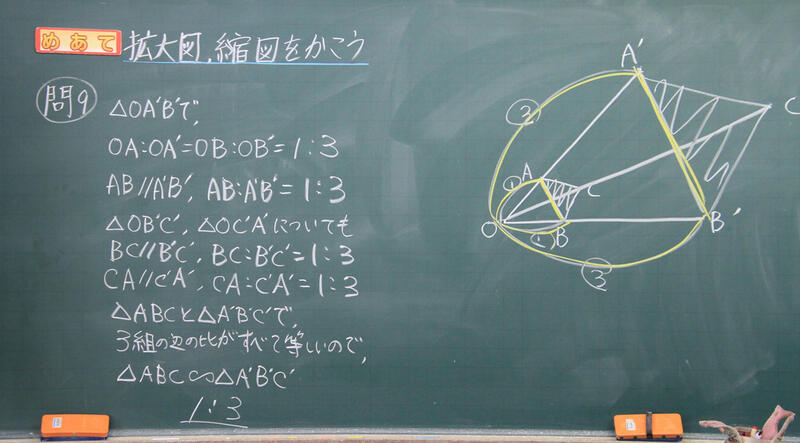 めあて 拡大図,縮図をかこう
問9
△OA'B'で,
OA:OA'=OB:OB'=1:3
AB//A'B', AB:A'B'=1:3
△OB'C', △OC'A'についても
BC//B'C', BC:B'C'=1:3
CA//C'A', CA:C'A'=1:3
△ABCと△A'B'C'で,
3組の辺の比がすべて等しいので,
△ABC∽△A'B'C'
1:3
A'
③
C
① A
C
O
① B
B'
③